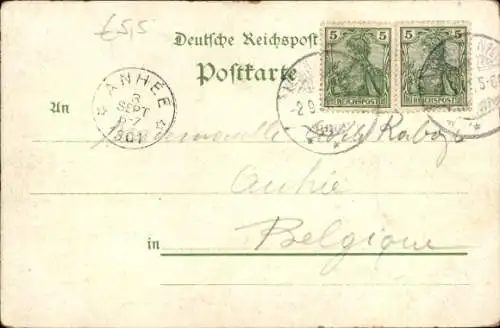 £5,5
Deutsche Reichspost
Postkarte
5 5 5 5
REICHSPOST REICHSPOST
ANHEE
3
SEPT
6-7
1901
-2 9
5-6
An Mademoiselle
Anhée
in Belgique